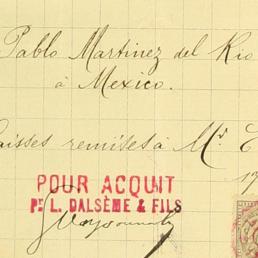 Pablo Martinez del Rio
à Mexico.
aisses remises à Mr
17
POUR ACQUIT
Pr L. DALSÈME & FILS